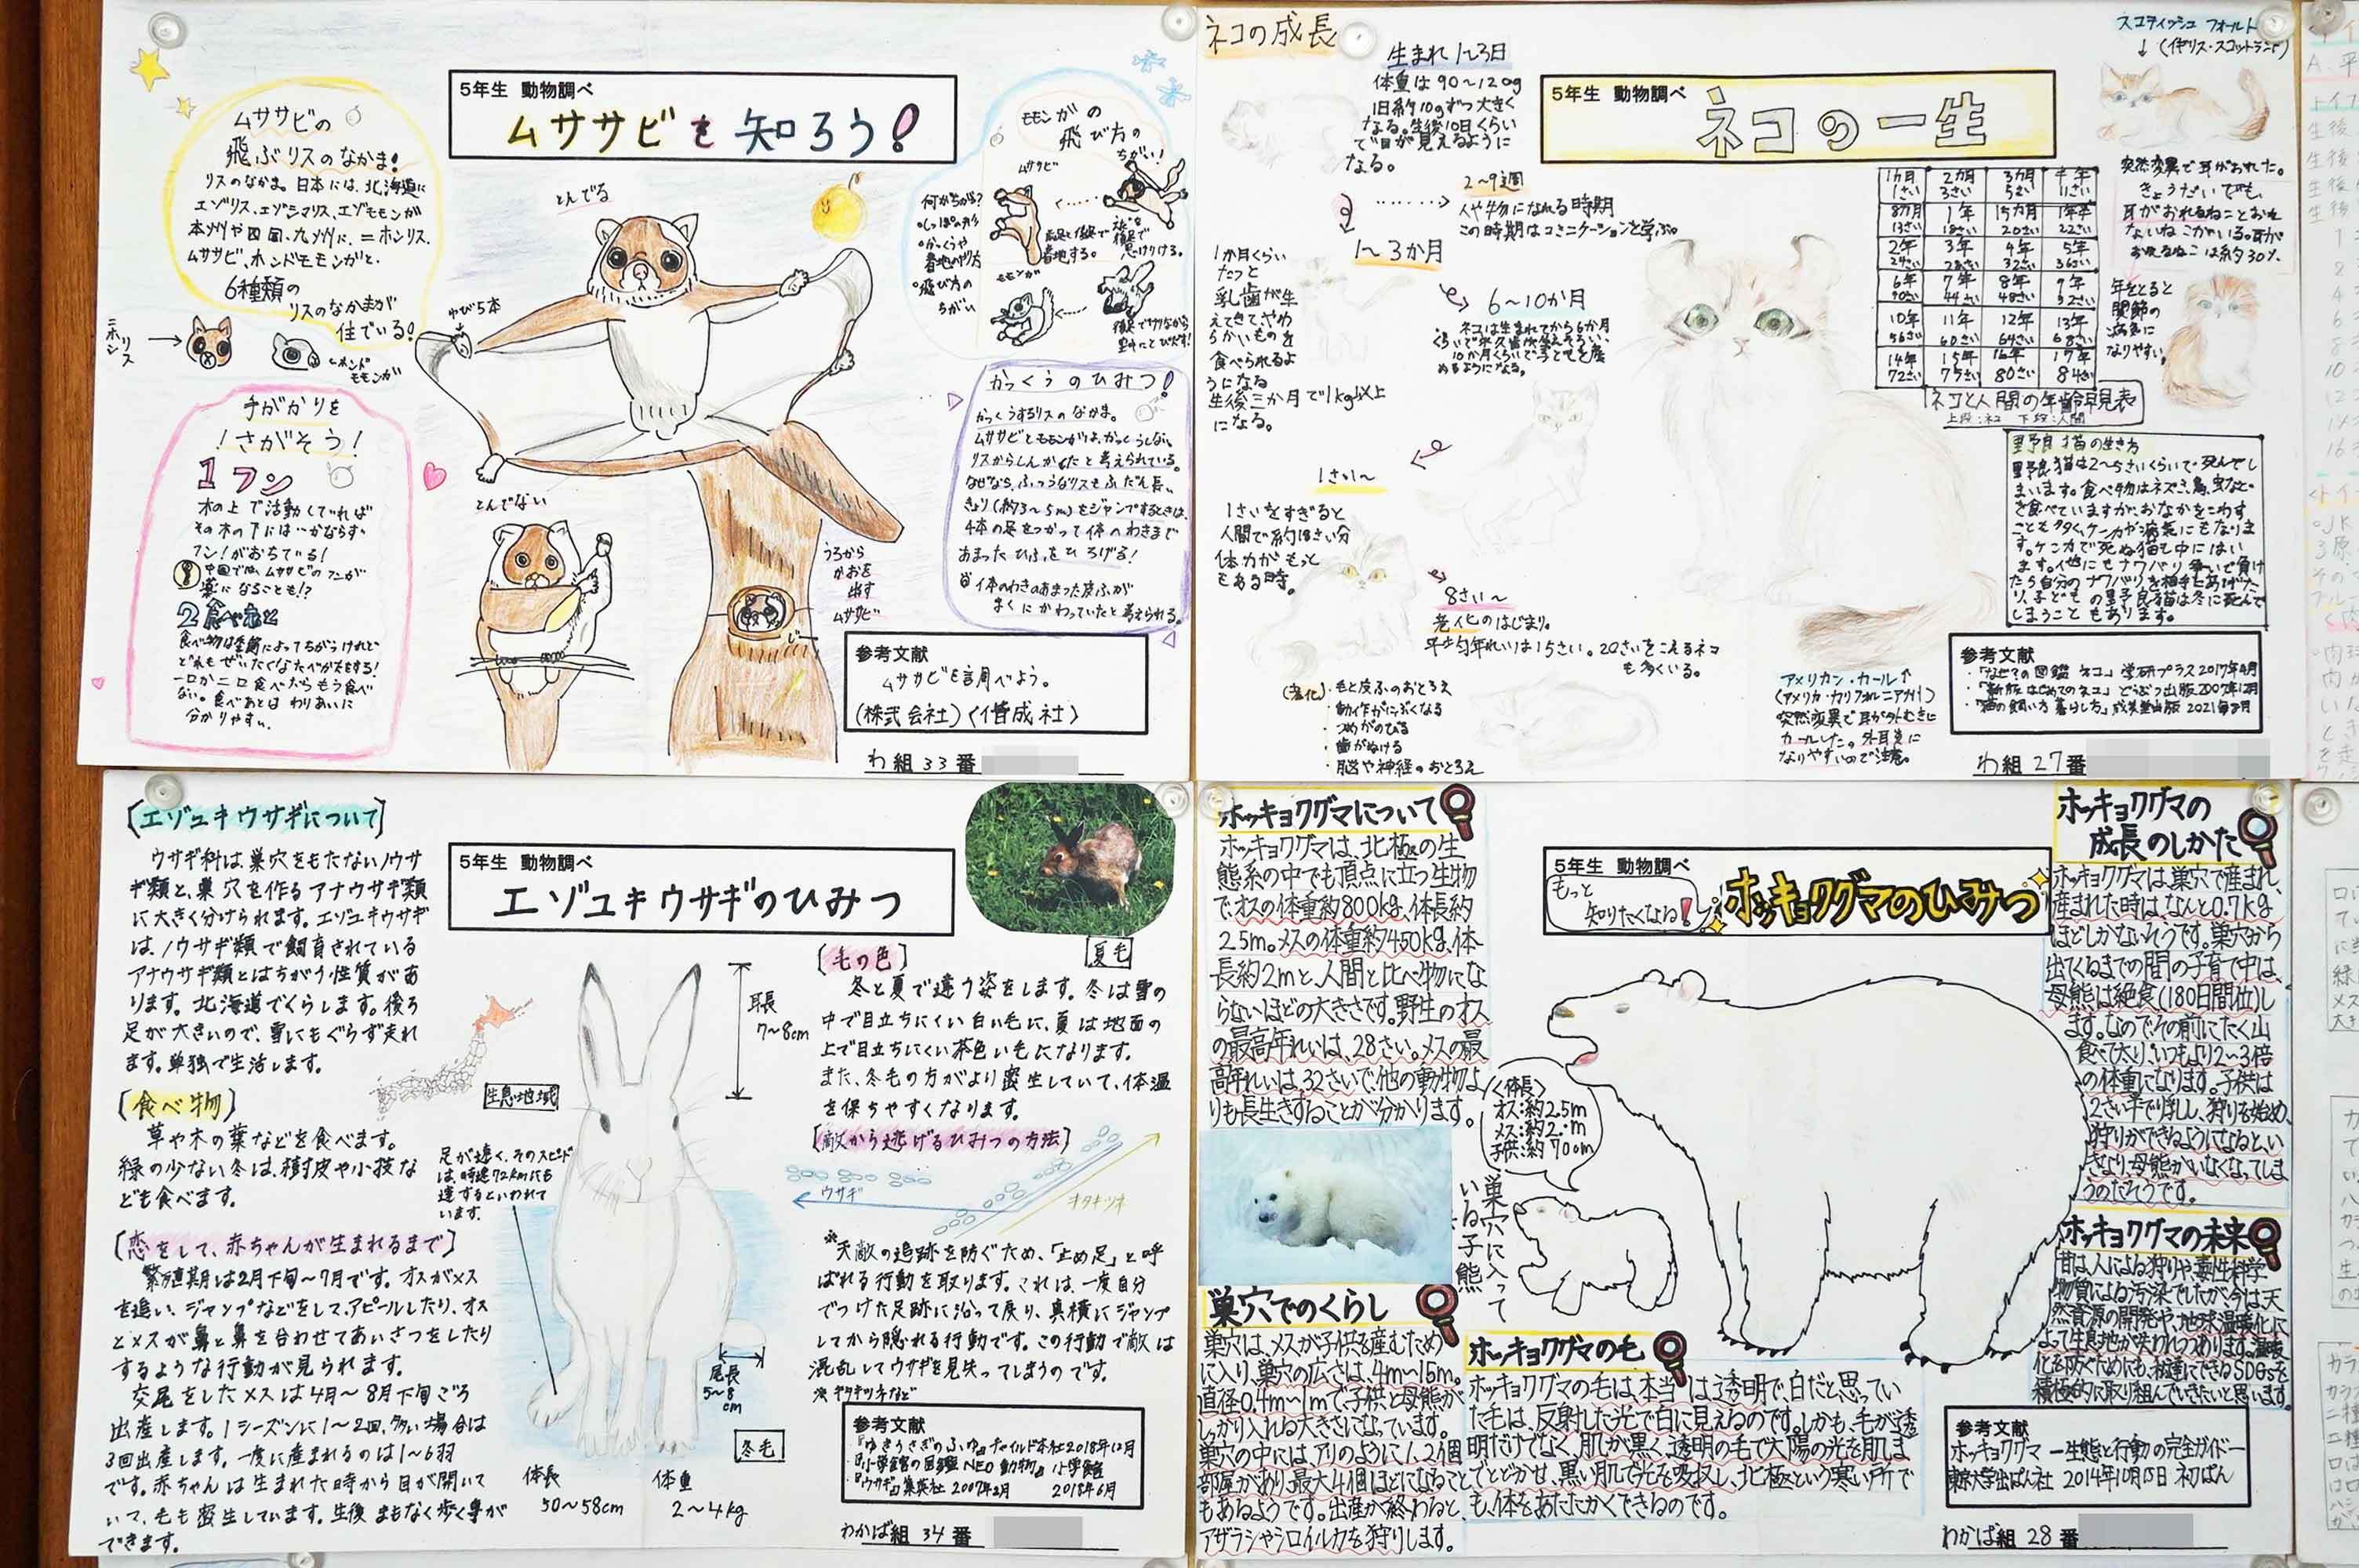 5年生 動物調べ
ムササビを知ろう!
ムササビの
飛ぶリスのなかま!
リスのなかま。日本には、北海道に
エゾリス、エゾシマリス、エゾモモンガ
本州や四国、九州に、ニホンリス、
ムササビ、ホンドモモンガと、
6種類の
リスのなかまが
住でいる!
ニホンリス
ホンドモモンガ
手がかりを
!さがそう!
1フン
木の上で活動していれば
その木の下には…かならず、
フン!がおちている!
中国では、ムササビのフンが
薬になることも!?
2食べあと
食べ物は季節によってちがうけれど
どれもぜいたくなたべかたをする!
一口か二口食べたらもう食べ
ない。食べあとはわりあいに
分かりやすい。
とんでる
ゆび5本
とんでない
うろから
かおを
出す
ムササビ
モモンガの
飛び方の
ちがい!
ムササビ
何がちがう?
しっぽの形
かっくうや
着地のやり方
飛び方の
ちがい
モモンガ
かっくうのひみつ!
かっくうするリスのなかま。
ムササビとモモンガは、かっくうしない
リスからしんかしたと考えられている。
なぜなら、ふつうなリスもふだん長い
きょり(約3〜5m)をジャンプするときは、
4本の足をつかって体のわきまで
あまったひふをひろげる!
体のわきのあまった皮ふが
まくにかわっていたと考えられる。
参考文献
ムササビを調べよう。
(株式会社)〈偕成社〉
わ組 33番
ネコの成長
5年生 動物調べ
ネコの一生
生まれ1〜3日
体重は90〜120g
1日約10gずつ大きく
なる。生後10日くらい
で目が見えるように
なる。
2〜9週
人や物になれる時期
この時期はコミニケーションを学ぶ。
1〜3か月
1か月くらい
たつと
乳歯が生
えてきて、やわ
らかいものを
食べられるよ
うになる
生後三か月で1kg以上
になる。
6〜10か月
ネコは生まれてから6か月
くらいで永久歯が生えそろい、
10か月くらいで子どもを産
めるようになる。
1さい〜
1さいをすぎると
人間で約18さい分
体力がもっと
もある時。
8さい〜
老化のはじまり。
平均年れいは15さい。20さいをこえるネコ
も多くいる。
(老化)・毛と皮ふのおとろえ
・動作がにぶくなる
・つめがのびる
・歯がぬける
・脳や神経のおとろえ
スコティッシュ フォールド
↓(イギリス・スコットランド)
突然変異で耳がおれた。
きょうだいでも、
耳がおれるねことおれ
ないねこがいる。耳が
おれるねこは約30%。
年をとると
関節の
病気に
なりやすい。
1カ月 2カ月 3カ月 半年
1さい 3さい 5さい 11さい
8カ月 1年 15カ月 1年半
13さい 18さい 20さい 22さい
2年 3年 4年 5年
24さい 28さい 32さい 36さい
6年 7年 8年 9年
40さい 44さい 48さい 52さい
10年 11年 12年 13年
56さい 60さい 64さい 68さい
14年 15年 16年 17年
72さい 75さい 80さい 84さい
ネコと人間の年齢早見表
上段:ネコ 下段:人間
野良猫の生き方
野良猫は2〜5さいくらいで死んでし
まいます。食べ物はネズミ、鳥、虫など
を食べていますが、おなかをこわす
ことも多く、ケンカや病気にもなりま
す。ケンカで死ぬ猫も中にはい
ます。他にもナワバリ争いで負け
たら自分のナワバリを相手にあげた
り、子どもの野良猫は冬に死んで
しまうこともあります。
アメリカン・カール↑
(アメリカ・カリフォルニア州)
突然変異で耳が外むきに
カールした。外耳炎に
なりやすいので注意。
参考文献
・「なぜ?の図鑑 ネコ」学研プラス2017年4月
・「新版はじめてのネコ」どうぶつ出版2007年12月
・「猫の飼い方 暮らし方」成美堂出版 2021年8月
わ組 27番
[エゾユキウサギについて]
ウサギ科は、巣穴をもたないノウサ
ギ類と、巣穴を作るアナウサギ類
に大きく分けられます。エゾユキウサギ
は、ノウサギ類で飼育されている
アナウサギ類とはちがう性質があ
ります。北海道でくらします。後ろ
足が大きいので、雪にもぐらず走れ
ます。単独で生活します。
[食べ物]
草や木の葉などを食べます。
緑の少ない冬は、樹皮や小技な
ども食べます。
[恋をして、赤ちゃんが生まれるまで]
繁殖期は2月下旬〜7月です。オスがメス
を追い、ジャンプなどをして、アピールしたり、オス
とメスが鼻と鼻を合わせてあいさつをしたり
するような行動が見られます。
交尾をしたメスは4月〜8月下旬ごろ
出産します。1シーズンに1〜2回、多い場合は
3回出産します。一度に産まれるのは1〜6羽
です。赤ちゃんは生まれた時から目が開いて
いて、毛も密生しています。生後まもなく歩く事が
できます。
5年生 動物調べ
エゾユキウサギのひみつ
生息地域
足が速く、そのスピード
は、時速72kmにも
達するといわれて
います。
耳長
7〜8cm
尾長
5〜8
cm
冬毛
体長
50〜58cm
体重
2〜4kg
夏毛
[毛の色]
冬と夏で違う姿をします。冬は雪の
中で目立ちにくい白い毛に、夏は地面の
上で目立ちにくい茶色い毛になります。
また、冬毛の方がより密生していて、体温
を保ちやすくなります。
[敵から逃げるひみつの方法]
ウサギ
キタキツネ
※天敵の追跡を防ぐため、「止め足」と呼
ばれる行動を取ります。これは、一度自分
でつけた足跡に沿って戻り、真横にジャンプ
してから隠れる行動です。この行動で敵は
混乱してウサギを見失ってしまうのです。
※キタキツネなど
参考文献
『ゆきうさぎのふゆ』チャイルド本社2018年12月
『小学館の図鑑NEO動物』小学館
2018年6月
『ウサギ』集英社 2007年2月
わかば組 34番
ホッキョクグマについて
ホッキョクグマは、北極の生
態系の中でも頂点に立つ生物
で、オスの体重約800kg、体長約
2.5m。メスの体重約450kg、体
長約2mと、人間と比べ物にな
らないほどの大きさです。野生のオス
の最高年れいは、28さい。メスの最
高年れいは、32さいで、他の動物よ
りも長生きすることが分かります。
5年生 動物調べ
もっと
知りたくなる!
ホッキョクグマのひみつ
〈体長〉
オス:約2.5m
メス:約2.m
子供:約70cm
巣穴に入って
いる子熊
巣穴でのくらし
巣穴は、メスが子供を産むため
に入り、巣穴の広さは、4m〜15m。
直径0.4m〜1mで子供と母熊が
しっかり入れる大きさになっています。
巣穴の中には、アリのように1、2個
部屋があり、最大4個ほどになること
もあるようです。出産が終わると、
アザラシやシロイルカを狩りします。
ホッキョクグマの毛
ホッキョクグマの毛は、本当は透明で、白だと思ってい
た毛は、反射した光で白に見えるのです。しかも、毛が透
明だけでなく、肌が黒く、透明の毛で太陽の光を肌ま
でとどかせ、黒い肌で光を吸収し、北極という寒い所で
も、体をあたたかくできるのです。
ホッキョクグマの
成長のしかた
ホッキョクグマは、巣穴で産まれ、
産まれた時は、なんと0.7kg
ほどしかないそうです。巣穴から
出てくるまでの間の子育て中は、
母熊は絶食(180日間位)し
ます。なので、その前にたく山
食べて太り、いつもより2〜3倍
の体重になります。子供は
2さい半で乳離れし、狩りを始め、
狩りができるようになると、い
きなり、母熊がいなくなってしま
うのだそうです。
ホッキョクグマの未来
昔は、人による狩りや、毒性科学
物質による汚染でしたが、今は天
然資源の開発や、地球温暖化に
よって生息地が失われつつあります。温暖
化を防ぐためにも、私達にできるSDGsを
積極的に取り組んでいきたいと思います。
参考文献
ホッキョクグマ 一生態と行動の完全ガイド一
東京大学出ぱん社 2014年10月15日 初ぱん
わかば組 28番